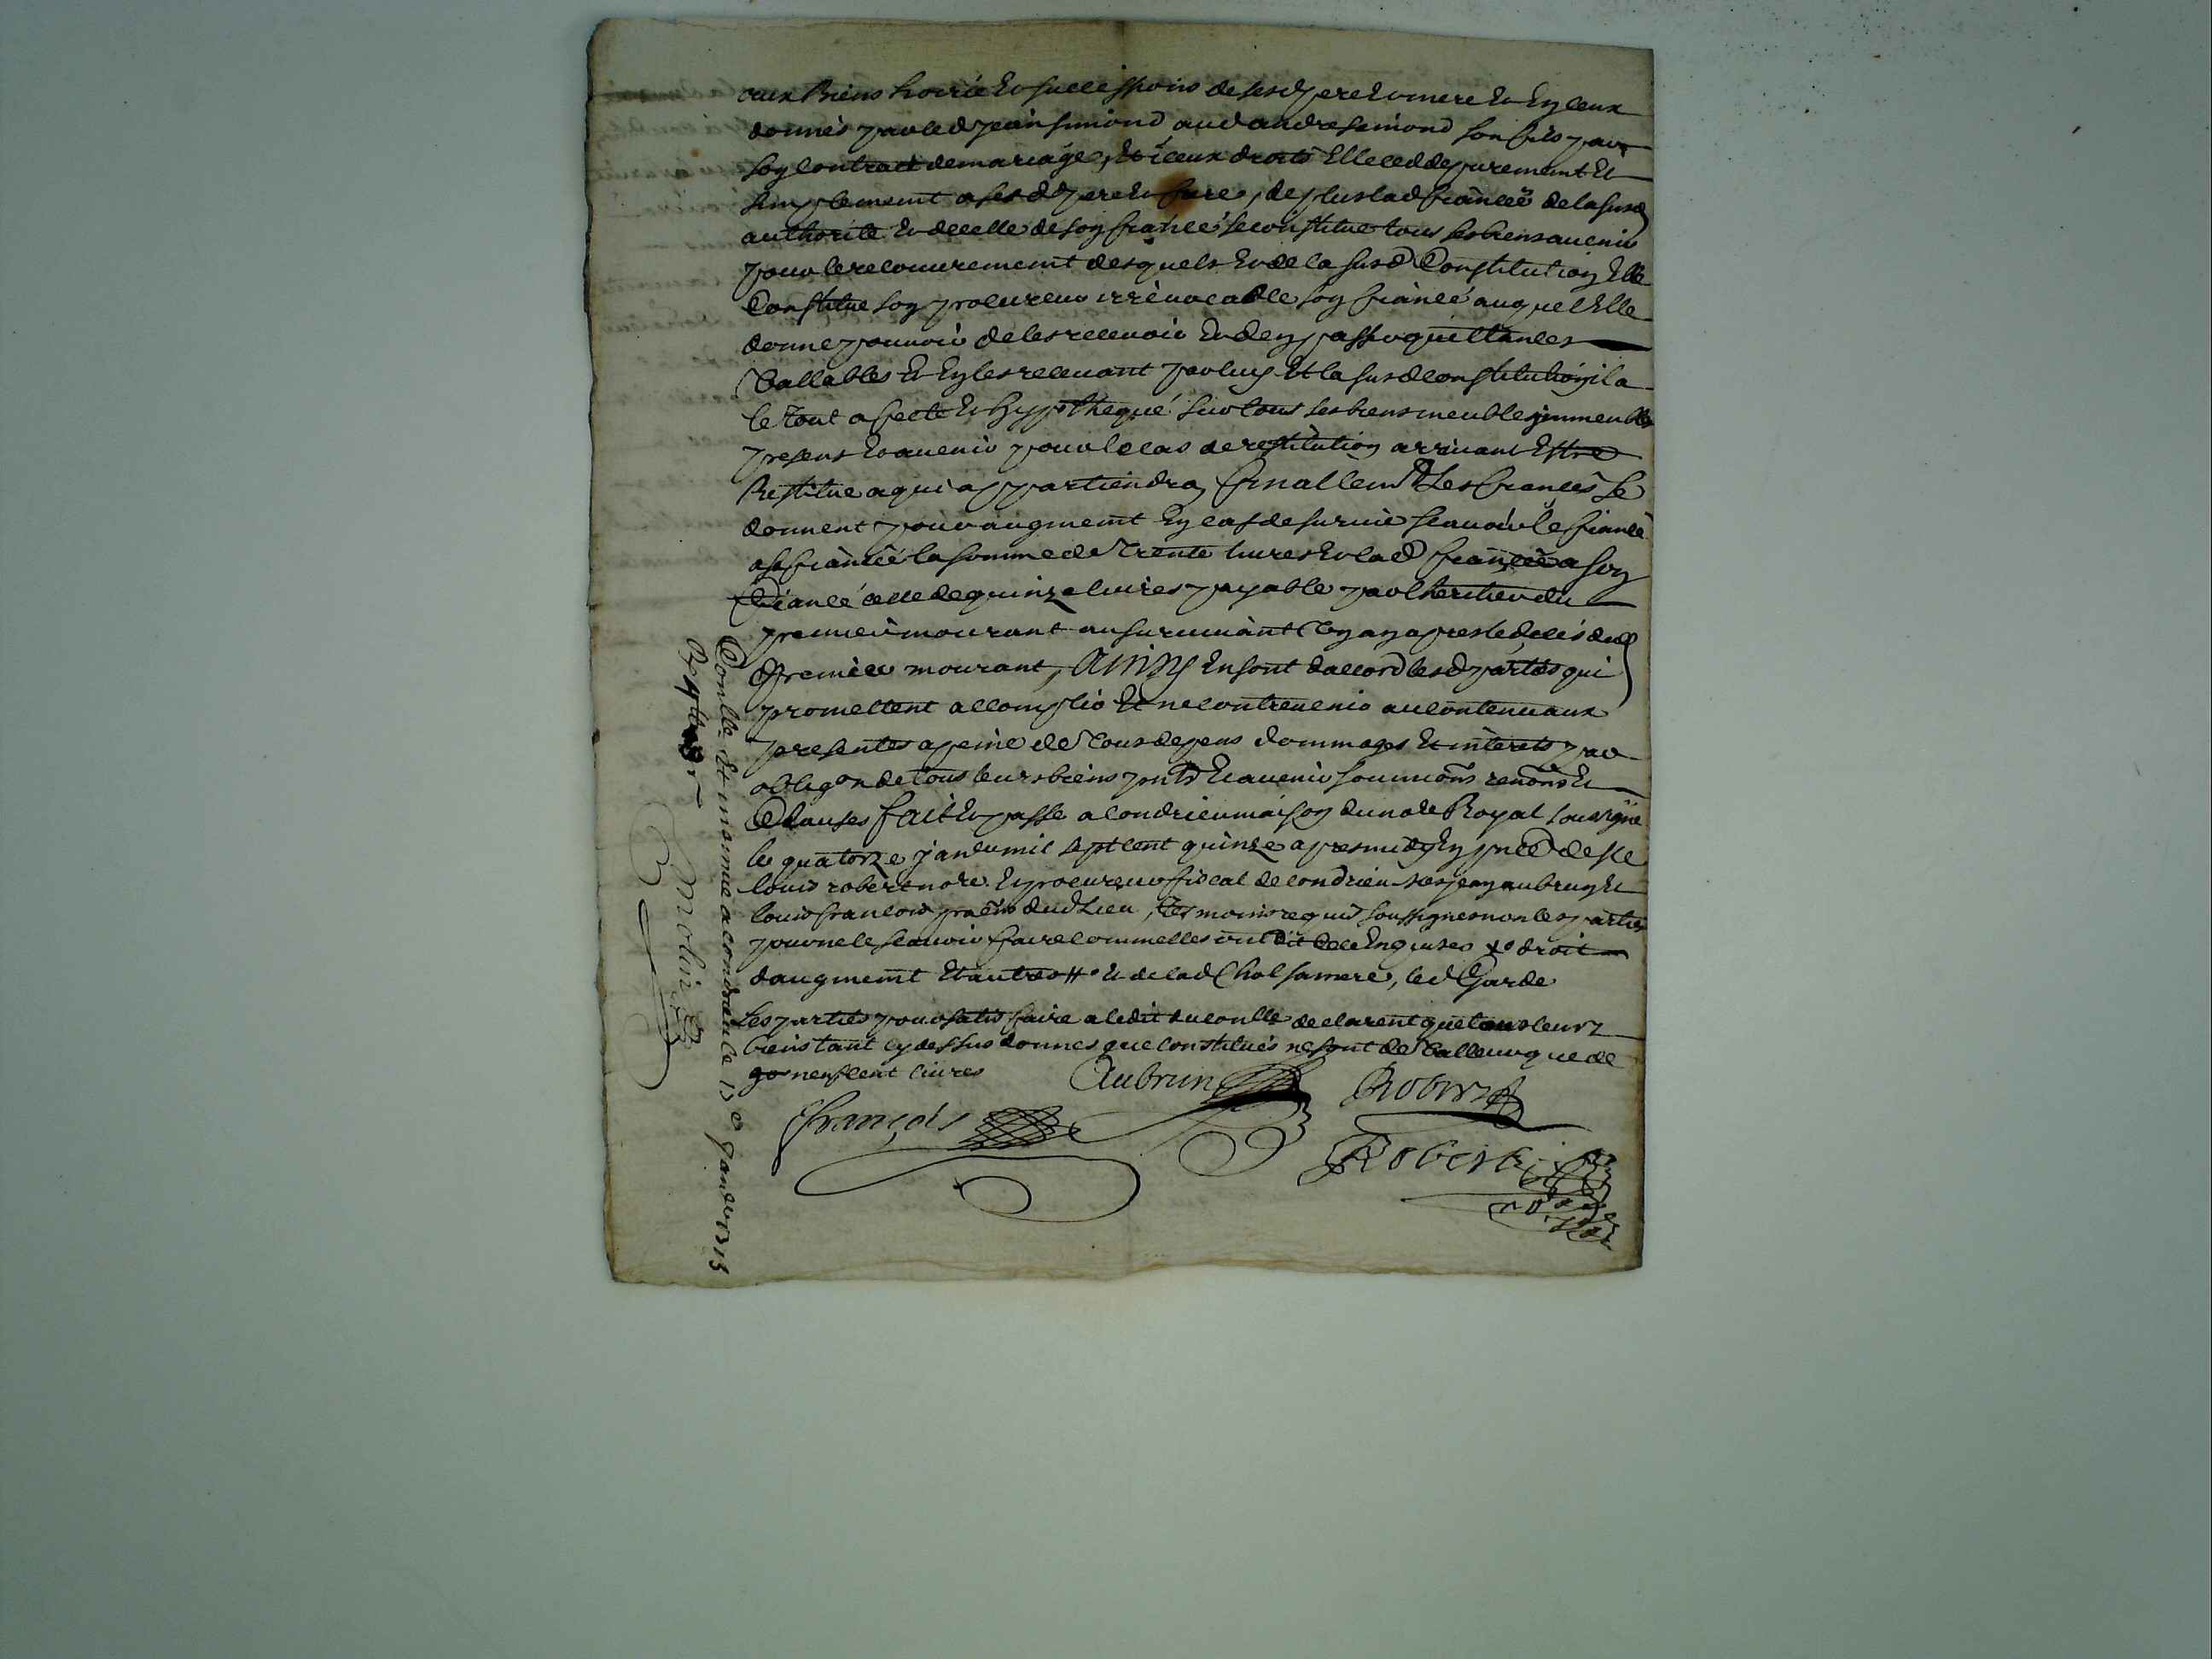 aux Biens hoirie et successions de sesd pere et mere et en ceux
donnés par led jean simond aud andre simond son fils par
son contract de mariage, et iceux droits Elle cedde purement et
simplement a ses dd pere et frere, de plus lad fiancée de la susd
authorité et de celle de son fiancé se constitue tous ses biens avenir
pour le recouvrement desquels et de la susd Constitution Elle
Constitue son procureur irrévocable son fiancé auquel Elle
donne pouvoir de les recevoir et d'en passer quittances
Vallables et en les recevant par luy et la susd constitution il a
le tout affecté et hypothequé sur tous ses biens meubles immeubles
presens et avenir pour le cas de restitution arrivant Estre
Restitué a qui appartiendra, finallemt Les fiancés se
donnent pour augment en cas de survie scavoir le fiancé
a sa fiancée la somme de Trente livres et lad fiancée a son
fiancé celle de quinze livres payable par l'heritier du
premier mourant au survivant un an apres le deces dud
premier mourant, Ainsy en sont d'accord lesd parties qui
promettent accomplir et ne contrevenir au contenu aux
presentes a peine de Tous depens dommages et interets par
obligon de tous leurs biens pnts et avenir soumions renons et
Clauses fait et passé a condrieu maison du nore Royal soussigné
le quatorze janer mil sept cent quinze apres midy En pnce de sr
louis robert nore et procureur fiscal de condrieu jean aubrun et
louis francois pratn dud Lieu, tesmoins requis soussignes non les parties
pour ne le scavoir faire comme elles ont dit de ce Enquises x droit
d'augment et autres # et de lad Chol sa mere, led Garde
Les parties pour satisfaire a l'edit du conlle declarent que tous leurs
biens tant cy dessus donnes que constitués ne sont de Valleur que de
neuf cent livres
Aubrun Robert
François
Robert
Conllé et insinué a condrieu le 15e janer 1715
Molin